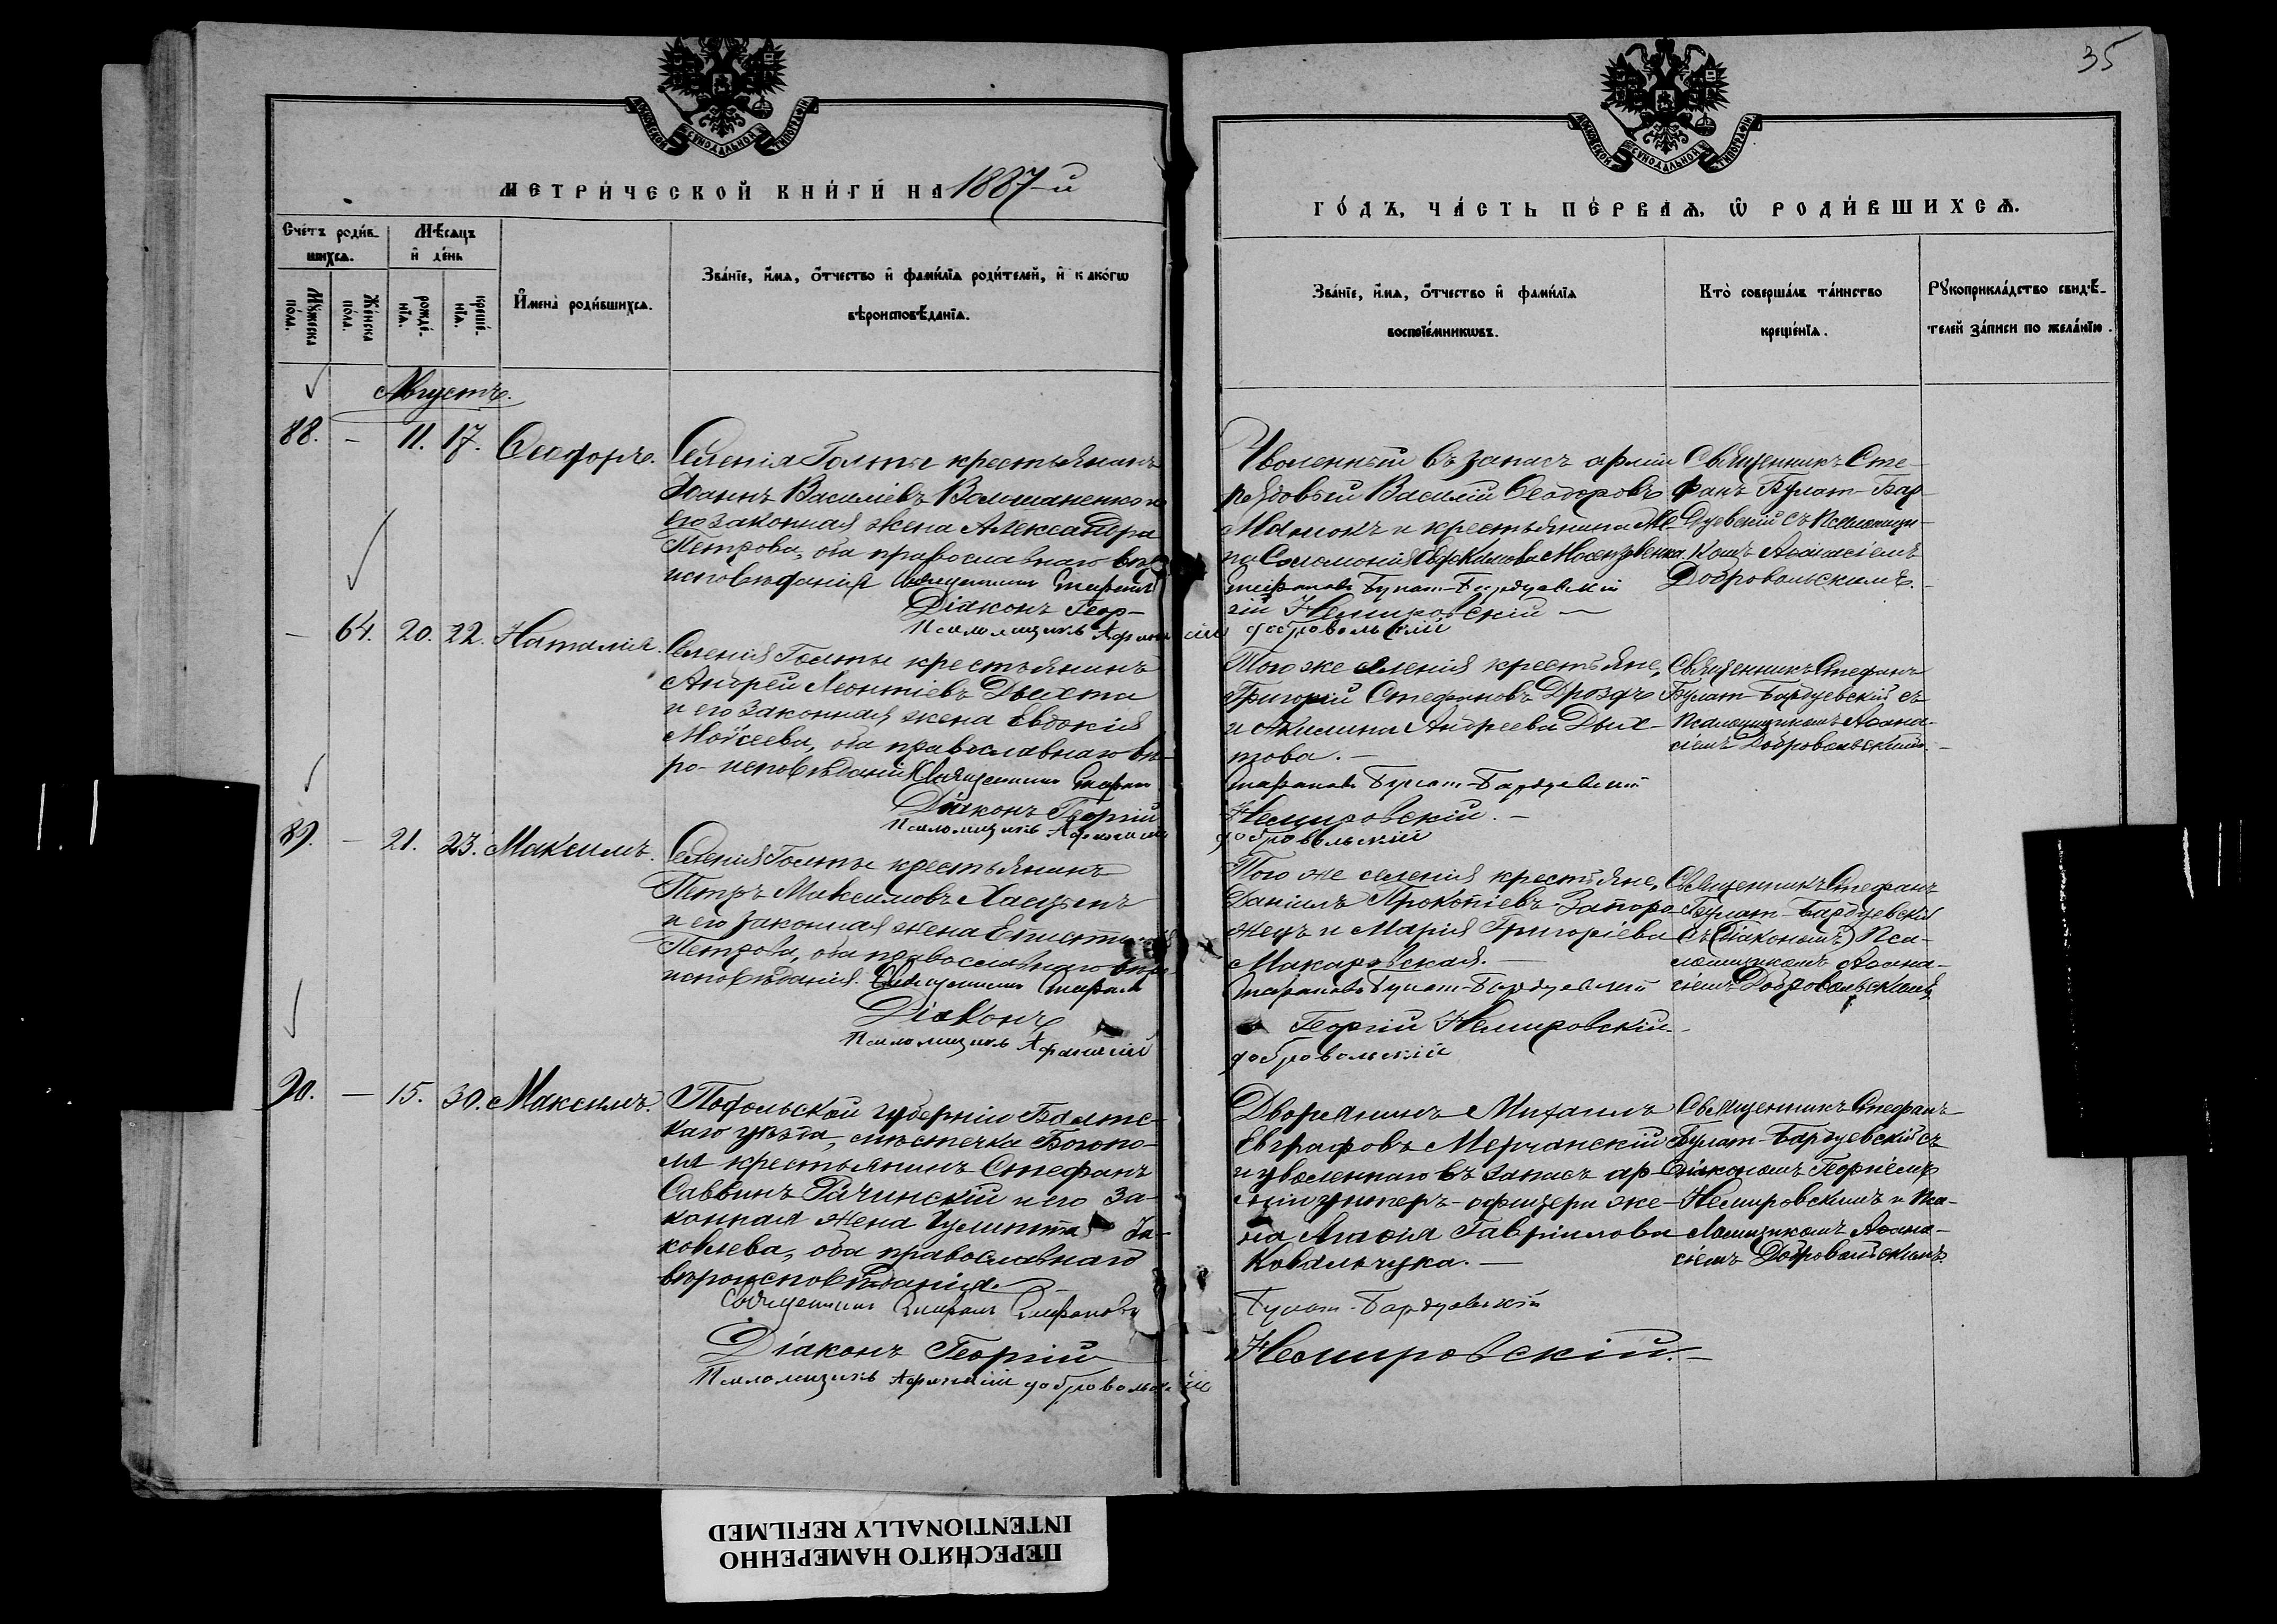 35
МОСКОВСКОЙ СѴНОДАЛЬНОЙ ТИПОГРАФІИ
МОСКОВСКОЙ СѴНОДАЛЬНОЙ ТИПОГРАФІИ
МЕТРИ́ЧЕСКОЙ КНИ́ГИ НА 1887-й
ГО́ДЪ, ЧА́СТЬ ПЕ́РВАѦ, Ѡ РОДИ́ВШИХСѦ.
Сче́тъ роди́в-
шихсѧ.
Мѣ́сѧцъ
и҆ де́нь
Мꙋ́жеска по́ла.
Же́нска по́ла.
рожде́-нїѧ.
креще́-нїѧ.
И҆мена̀ роди́вшихсѧ.
Зва́нїе, и҆́мѧ, ѻ҆́тчество и҆ фами́лїѧ роди́телей, и҆ како́гѡ
вѣроисповѣ́данїѧ.
Зва́нїе, и҆́мѧ, ѻ҆́тчество и҆ фами́лїѧ
воспрїе́мникѡвъ.
Кто̀ соверша́лъ та́инство
креще́нїѧ.
Рꙋкоприкла́дство свидѣ́-
телей за́писи по жела́нїю.
Августъ.
88. - 11. 17. Ѳеодоръ.
Селенія Голты крестьянинъ
Іоаннъ Василіевъ Волошаненко и
его законная жена Александра
Петрова, оба православнаго вѣро-
исповѣданія Священникъ Стефанъ
Діаконъ Геор-
Псаломщикъ Афанасій
Уволенный въ запасъ арміи
рядовый Василій Ѳеодоровъ
Мамокъ и крестьянина же-
на Соломонія
Стефановъ Булат-Бардуевскій
гій Немировскій
добровольскій
Священникъ Сте-
фанъ Булат-Бар-
дуевскій съ псаломщи-
комъ Аѳанасіемъ
Добровольскимъ.
- 64. 20. 22. Наталія.
Селенія Голты крестьянинъ
Андрей Леонтіевъ Дыхта
и его законная жена Евдокія
Моѵсеева, оба православнаго вѣ-
ро-исповѣданія Священникъ Стефанъ
Діаконъ Георгій
Псаломщикъ Афанасій
Того же селенія крестьяне,
Григорій Стефановъ Дроздъ
и Акилина Андреева Дых-
това. -
Стефановъ Булат-Бардуевскій
Немировскій. -
добровольскій
Священникъ Стефанъ
Булат-Бардуевскій съ
псаломщикомъ Аѳана-
сіемъ Добровольскимъ. -
89. - 21. 23. Максимъ.
Селенія Голты крестьянинъ
Петръ Максимовъ
и его законная жена
Петрова, оба православнаго вѣро-
исповѣданія. Священникъ Стефанъ
Діаконъ
Псаломщикъ Афанасій
Того же селенія крестьяне,
Даніилъ Прокопіевъ Запоро-
жецъ и Марія Григоріева
Макаровская. -
Стефановъ Булат-Бардуевскій
Георгій Немировскій -
добровольскій
Священникъ Стефанъ
Булат-Бардуевскій
съ (діакономъ) пса-
ломщикомъ Аѳана-
сіемъ Добровольскимъ
90. - 15. 30. Максимъ.
Подольской губерніи Балтс-
каго уѣзда, мѣстечка Богопо-
ля крестьянинъ Стефанъ
Саввинъ Рачинскій и его за-
конная жена Іулитта Іа-
ковлева, оба православнаго
вѣроисповѣданія.
Священникъ Стефанъ Стефановъ
Діаконъ Георгій
Псаломщикъ Афанасій добровольскій
Дворянинъ Михаилъ
Евграфовъ Мерчанскій
и уволеннаго въ запасъ ар-
міи унтеръ-офицера же-
на Гавріилова
Ковальчука. -
Булат-Бардуевскій
Немировскій. -
Священникъ Стефанъ
Булат-Бардуевскій съ
діакономъ Георгіемъ
Немировскимъ и пса-
ломщикомъ Аѳана-
сіемъ Добровольскимъ.
ПЕРЕСНЯТО НАМЕРЕННО
INTENTIONALLY REFILMED